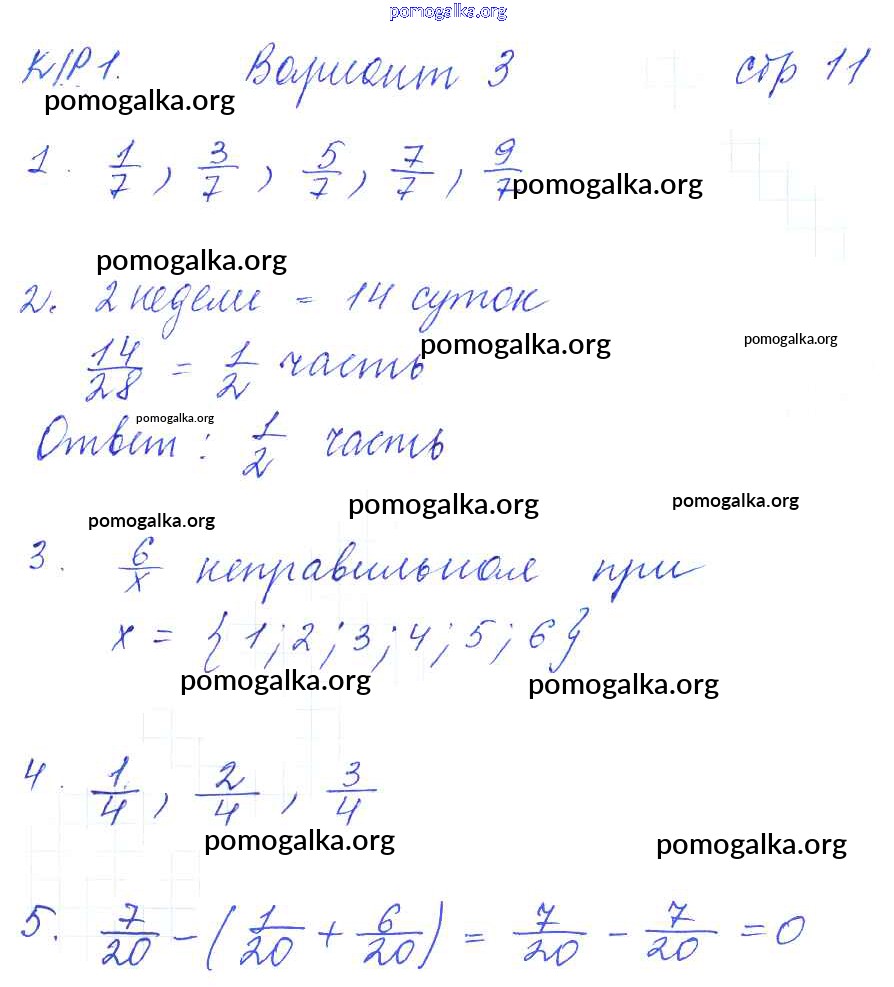 pomogalka.org
К/Р 1. Вариант 3 стр 11
pomogalka.org
1. 1/7, 3/7, 5/7, 7/7, 9/7
pomogalka.org
pomogalka.org
2. 2 недели = 14 суток
14/28 = 1/2 часть
pomogalka.org
pomogalka.org
pomogalka.org
Ответ: 1/2 часть
pomogalka.org
pomogalka.org
pomogalka.org
3. 6/x неправильная при
x = {1; 2; 3; 4; 5; 6}
pomogalka.org
pomogalka.org
4. 1/4, 2/4, 3/4
pomogalka.org
pomogalka.org
5. 7/20 - (1/20 + 6/20) = 7/20 - 7/20 = 0